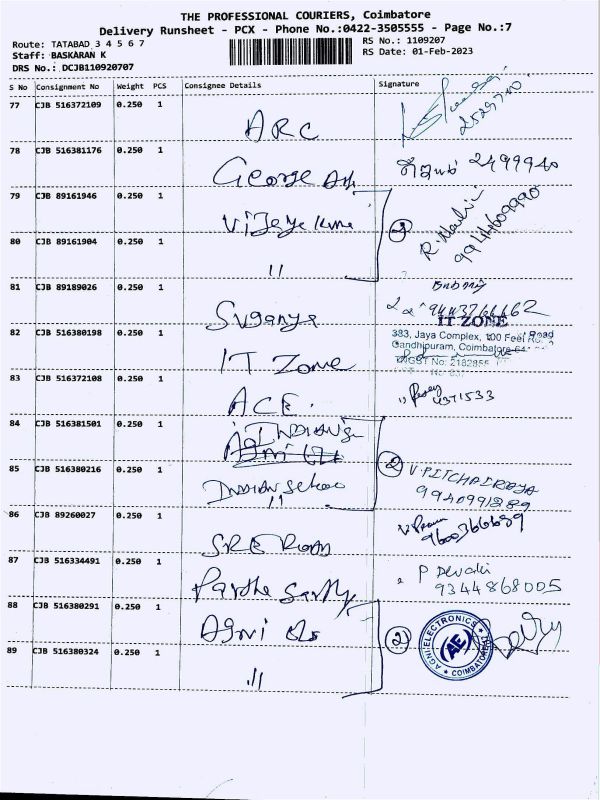 THE PROFESSIONAL COURIERS, Coimbatore
Delivery Runsheet - PCX - Phone No.:0422-3505555 - Page No.:7
Route: TATABAD 3 4 5 6 7
RS No.: 1109207
Staff: BASKARAN K
RS Date: 01-Feb-2023
DRS No.: DCJB110920707
S No Consignment No Weight PCS Consignee Details Signature
77 CJB 516372109 0.250 1
ARC
78 CJB 516381176 0.250 1
George 2499940
79 CJB 89161946 0.250 1
Vijaya
80 CJB 89161904 0.250 1
2
9944609990
"
81 CJB 89189026 0.250 1
Suganya
IT ZONE
82 CJB 516380198 0.250 1
383, Jaya Complex, 100 Feet Road
Gandhipuram, Coimbatore
IT Zone
83 CJB 516372108 0.250 1
ACE.
84 CJB 516381501 0.250 1
85 CJB 516380216 0.250 1
2 V.PITCHAIRAJA
Indian
9940991289
"
86 CJB 89260027 0.250 1
9600366639
SRE
87 CJB 516334491 0.250 1
P Devaki
9344868005
Partha Sarthy
88 CJB 516380291 0.250 1
Agni
2
AGNI ELECTRONICS
AE
COIMBATORE
89 CJB 516380324 0.250 1
"